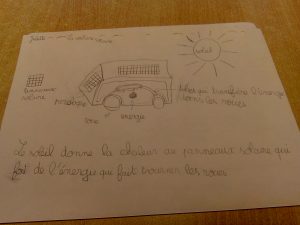 la voiture solaire
soleil
panneaux
solaire
roue
énergie
qui transfère l'énergie
dans les roues
Le soleil donne la chaleur au panneaux solaire qui
fait de l'énergie qui fait tourner les roues